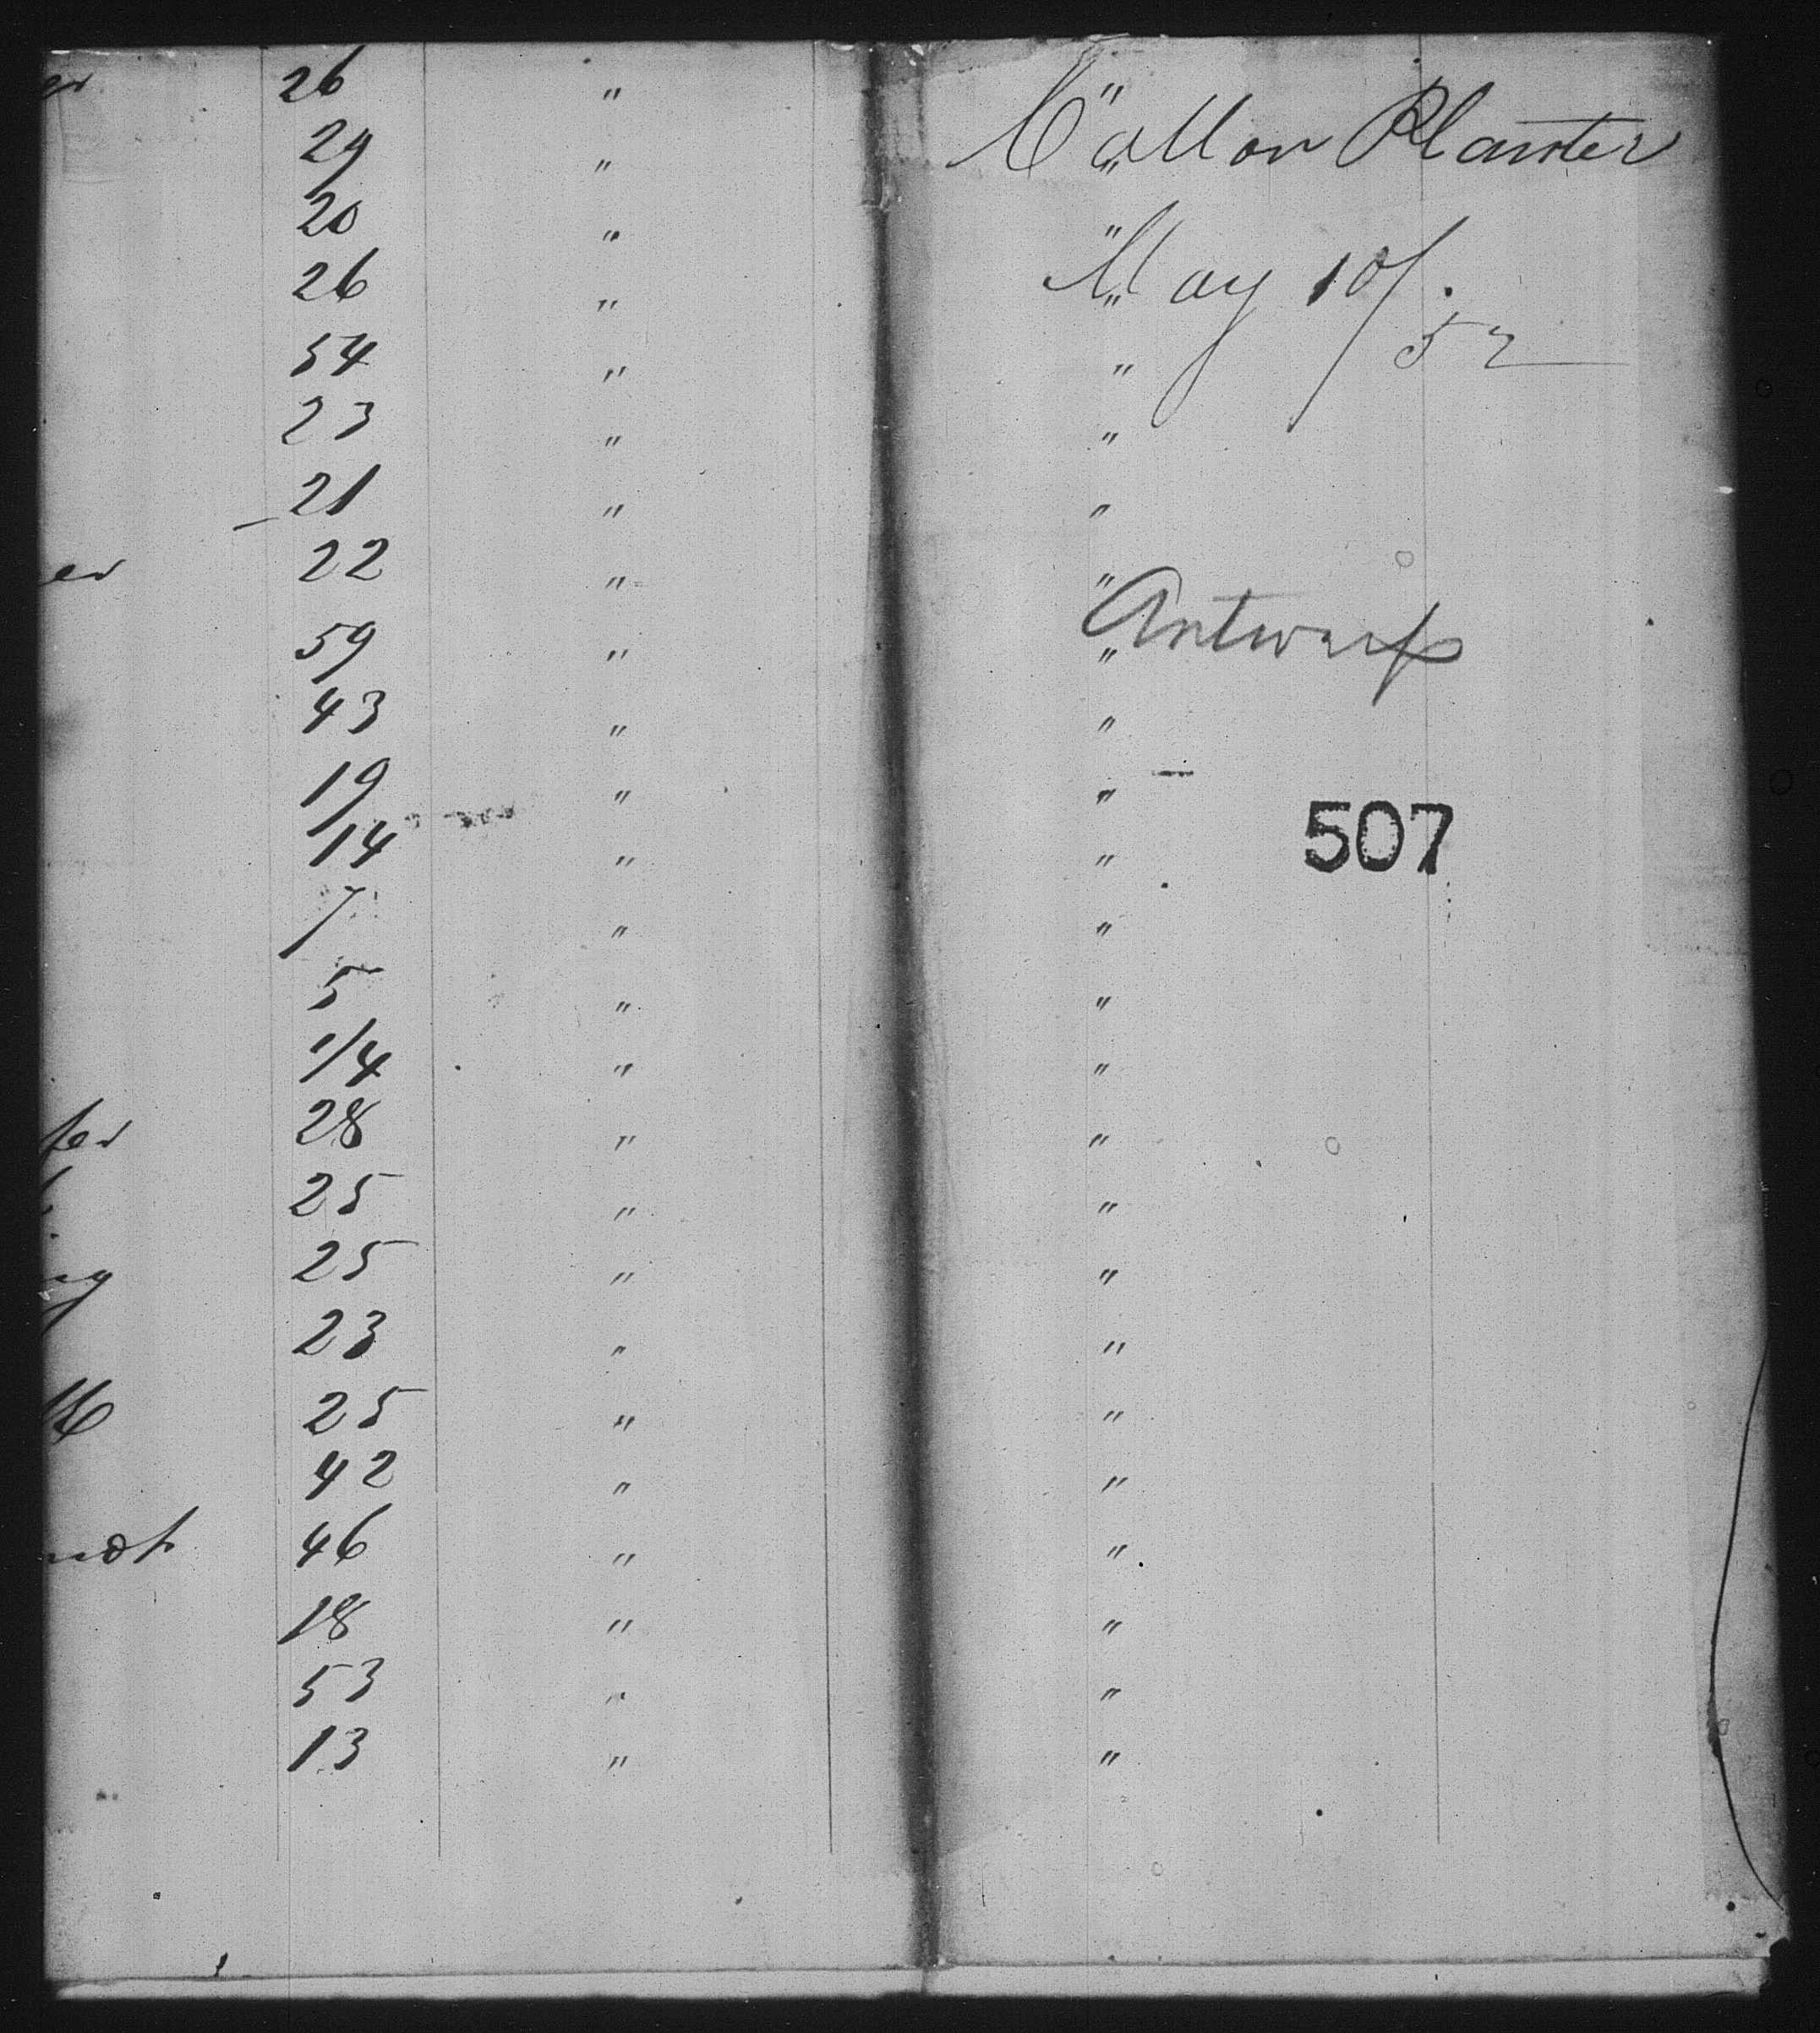 er 26 " "
29 " "
20 " "
26 " "
54 " "
23 " "
21 " "
er 22 " "
59 " "
43 " "
19 " "
14 " "
7 " "
5 " "
1/4 " "
fer 28 " "
25 " "
ng 25 " "
23 " "
25 " "
42 " "
ndt 46 " "
18 " "
53 " "
13 " "
Cotton Planter
May 10/.
52
Antwerp
507